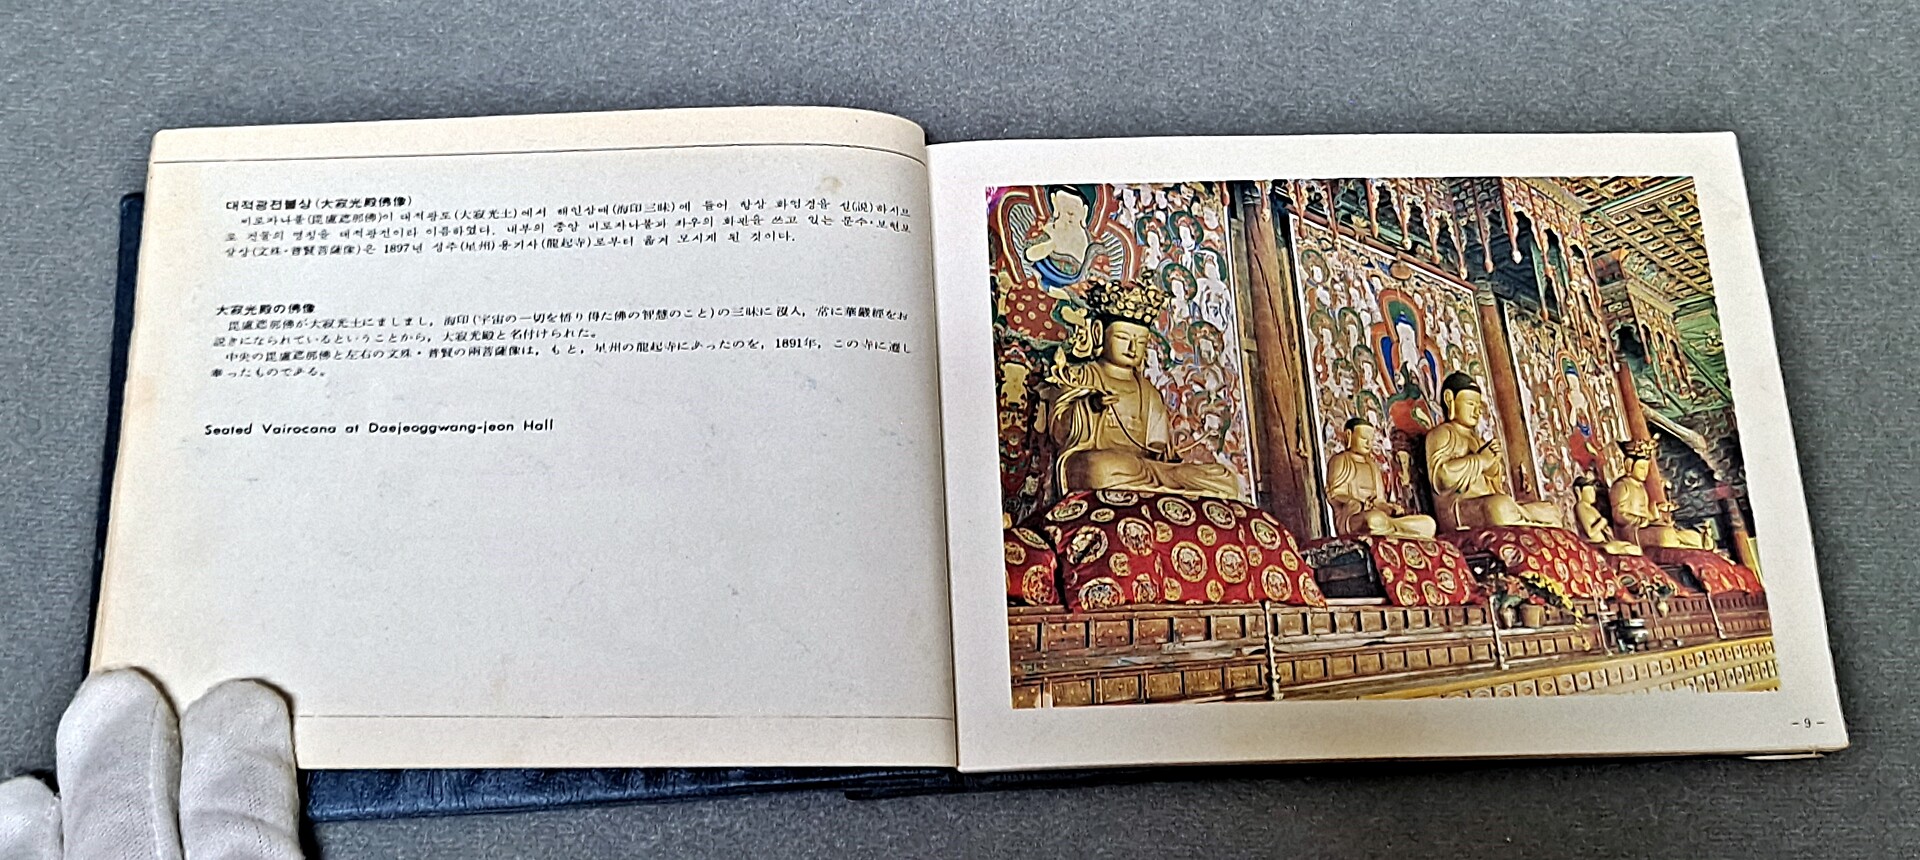 대적광전불상(大寂光殿佛像)
비로자나불(毘盧遮那佛)이 대적광토(大寂光土)에서 해인삼매(海印三昧)에 들어 항상 화엄경을 설(說)하시므
로 건물의 명칭을 대적광전이라 이름하였다. 내부의 중앙 비로자나불과 좌우의 화관을 쓰고 있는 문수·보현보
살상(文殊·普賢菩薩像)은 1897년 성주(星州)용기사(龍起寺)로부터 옮겨 모시게 된 것이다.
大寂光殿の佛像
毘盧遮那佛が大寂光土にましまし，海印(宇宙の一切を悟り得た佛の智慧のこと)の三昧に没入，常に華嚴經をお
説きになられているということから，大寂光殿と名付けられた。
中央の毘盧遮那佛と左右の文殊・普賢の兩菩薩像は，もと，星州の龍起寺にあったのを，1891年，この寺に遷し
奉ったものである。
Seated Vairocana at Daejeoggwang-jeon Hall
－9－